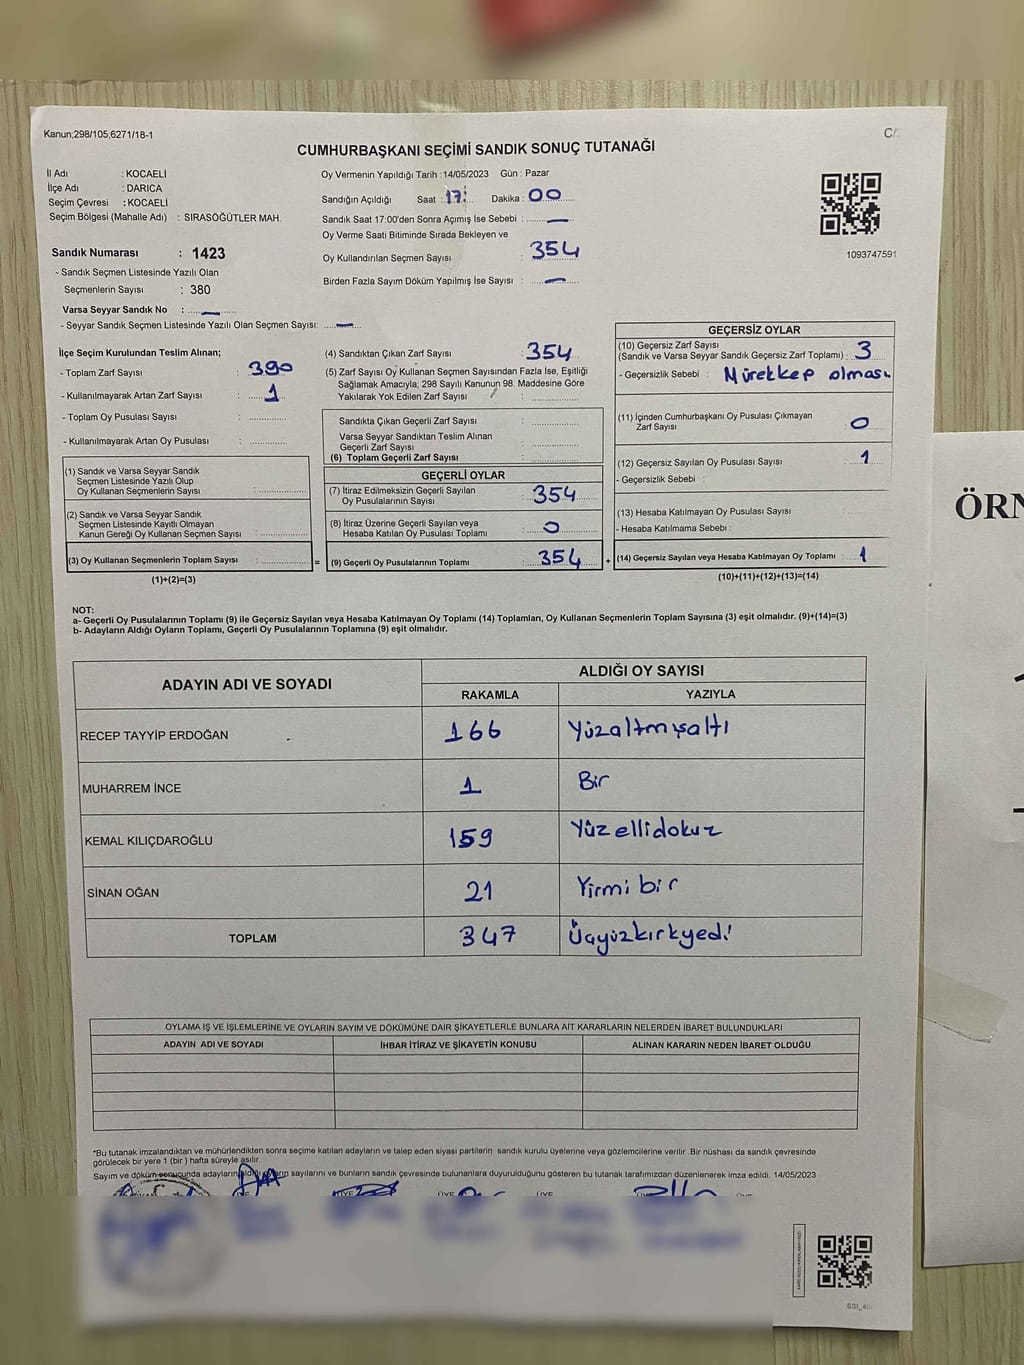 Kanun;298/105,6271/18-1
CUMHURBAŞKANI SEÇİMİ SANDIK SONUÇ TUTANAĞI
İl Adı : KOCAELİ
İlçe Adı : DARICA
Seçim Çevresi : KOCAELİ
Seçim Bölgesi (Mahalle Adı) : SIRASÖĞÜTLER MAH.
Oy Vermenin Yapıldığı Tarih :14/05/2023 Gün : Pazar
Sandığın Açıldığı Saat : 17: Dakika : 00
Sandık Saat 17:00'den Sonra Açımış İse Sebebi : —
Oy Verme Saati Bitiminde Sırada Bekleyen ve
Oy Kullandırılan Seçmen Sayısı : 354
Birden Fazla Sayım Döküm Yapılmış İse Sayısı : —
1093747591
Sandık Numarası : 1423
- Sandık Seçmen Listesinde Yazılı Olan
Seçmenlerin Sayısı : 380
Varsa Seyyar Sandık No : —
- Seyyar Sandık Seçmen Listesinde Yazılı Olan Seçmen Sayısı: —
İlçe Seçim Kurulundan Teslim Alınan;
- Toplam Zarf Sayısı : 390
- Kullanılmayarak Artan Zarf Sayısı : 1
- Toplam Oy Pusulası Sayısı :
- Kullanılmayarak Artan Oy Pusulası :
(1) Sandık ve Varsa Seyyar Sandık
Seçmen Listesinde Yazılı Olup
Oy Kullanan Seçmenlerin Sayısı :
(2) Sandık ve Varsa Seyyar Sandık
Seçmen Listesinde Kayıtlı Olmayan
Kanun Gereği Oy Kullanan Seçmen Sayısı :
(3) Oy Kullanan Seçmenlerin Toplam Sayısı :
(1)+(2)=(3)
(4) Sandıktan Çıkan Zarf Sayısı : 354
(5) Zarf Sayısı Oy Kullanan Seçmen Sayısından Fazla İse, Eşitliği
Sağlamak Amacıyla; 298 Sayılı Kanunun 98. Maddesine Göre
Yakılarak Yok Edilen Zarf Sayısı :
Sandıkta Çıkan Geçerli Zarf Sayısı :
Varsa Seyyar Sandıktan Teslim Alınan
Geçerli Zarf Sayısı :
(6) Toplam Geçerli Zarf Sayısı :
GEÇERLİ OYLAR
(7) İtiraz Edilmeksizin Geçerli Sayılan
Oy Pusulalarının Sayısı : 354
(8) İtiraz Üzerine Geçerli Sayılan veya
Hesaba Katılan Oy Pusulası Toplamı : 0
= (9) Geçerli Oy Pusulalarının Toplamı : 354
GEÇERSİZ OYLAR
(10) Geçersiz Zarf Sayısı
(Sandık ve Varsa Seyyar Sandık Geçersiz Zarf Toplamı) : 3
- Geçersizlik Sebebi : Mürekkep olması
(11) İçinden Cumhurbaşkanı Oy Pusulası Çıkmayan
Zarf Sayısı : 0
(12) Geçersiz Sayılan Oy Pusulası Sayısı : 1
- Geçersizlik Sebebi :
(13) Hesaba Katılmayan Oy Pusulası Sayısı :
- Hesaba Katılmama Sebebi :
+ (14) Geçersiz Sayılan veya Hesaba Katılmayan Oy Toplamı : 1
(10)+(11)+(12)+(13)=(14)
NOT:
a- Geçerli Oy Pusulalarının Toplamı (9) ile Geçersiz Sayılan veya Hesaba Katılmayan Oy Toplamı (14) Toplamları, Oy Kullanan Seçmenlerin Toplam Sayısına (3) eşit olmalıdır. (9)+(14)=(3)
b- Adayların Aldığı Oyların Toplamı, Geçerli Oy Pusulalarının Toplamına (9) eşit olmalıdır.
ADAYIN ADI VE SOYADI ALDIĞI OY SAYISI
RAKAMLA YAZIYLA
RECEP TAYYİP ERDOĞAN 166 Yüzaltmışaltı
MUHARREM İNCE 1 Bir
KEMAL KILIÇDAROĞLU 159 Yüz ellidokuz
SİNAN OĞAN 21 Yirmi bir
TOPLAM 347 Üçyüzkırkyedi
OYLAMA İŞ VE İŞLEMLERİNE VE OYLARIN SAYIM VE DÖKÜMÜNE DAİR ŞİKAYETLERLE BUNLARA AİT KARARLARIN NELERDEN İBARET BULUNDUKLARI
ADAYIN ADI VE SOYADI İHBAR İTİRAZ VE ŞİKAYETİN KONUSU ALINAN KARARIN NEDEN İBARET OLDUĞU
*Bu tutanak imzalandıktan ve mühürlendikten sonra seçime katılan adayların ve talep eden siyasi partilerin sandık kurulu üyelerine veya gözlemcilerine verilir .Bir nüshası da sandık çevresinde
görülecek bir yere 1 (bir ) hafta süreyle asılır.
Sayım ve döküm sonucunda adayların aldığı oyların sayılarını ve bunların sandık çevresinde bulunanlara duyurulduğunu gösteren bu tutanak tarafımızdan düzenlenerek imza edildi. 14/05/2023
ÜYE ÜYE ÜYE
ÖRN